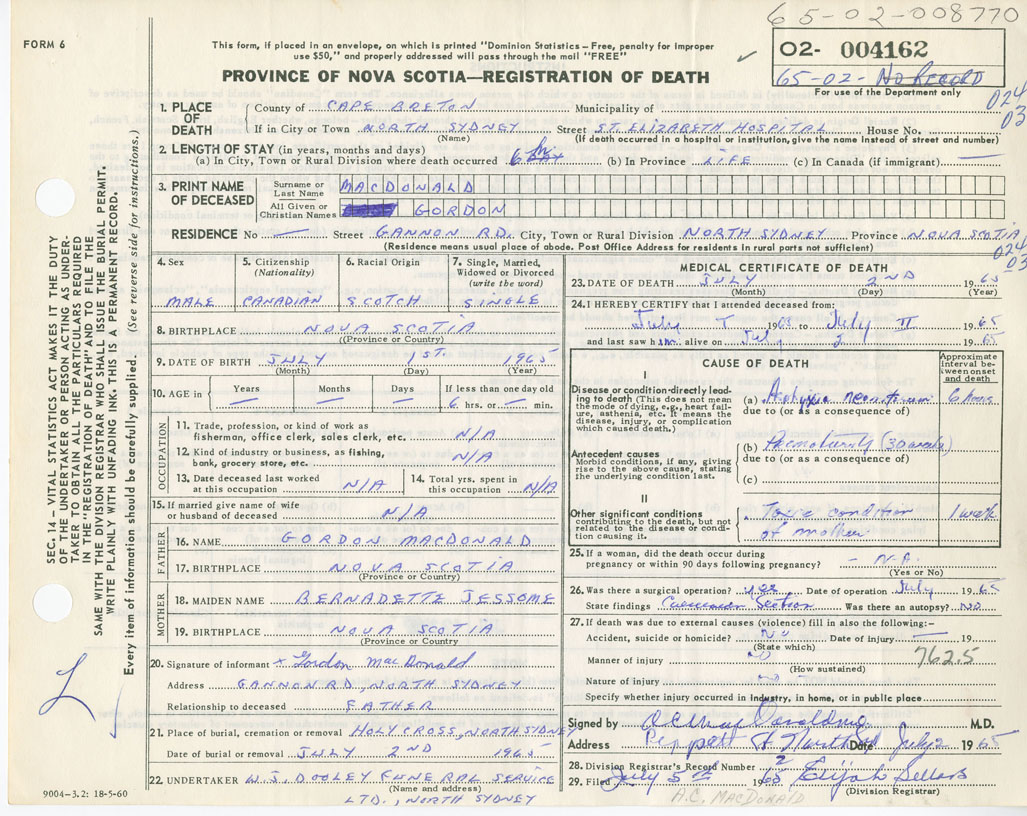 65-02-008770
FORM 6
This form, if placed in an envelope, on which is printed "Dominion Statistics – Free, penalty for improper
use $50," and properly addressed will pass through the mail "FREE"
02- 004162
65-02- NO RECORD
For use of the Department only
PROVINCE OF NOVA SCOTIA—REGISTRATION OF DEATH
024
03
1. PLACE OF DEATH County of CAPE BRETON Municipality of
If in City or Town NORTH SYDNEY Street ST. ELIZABETH HOSPITAL House No.
(Name) (If death occurred in a hospital or institution, give the name instead of street and number)
2. LENGTH OF STAY (in years, months and days)
(a) In City, Town or Rural Division where death occurred 6 (b) In Province LIFE (c) In Canada (if immigrant) —
3. PRINT NAME OF DECEASED Surname or Last Name MACDONALD
All Given or Christian Names GORDON
RESIDENCE No — Street GANNON RD. City, Town or Rural Division NORTH SYDNEY Province NOVA SCOTIA
(Residence means usual place of abode. Post Office Address for residents in rural parts not sufficient)
024
03
4. Sex MALE
5. Citizenship (Nationality) CANADIAN
6. Racial Origin SCOTCH
7. Single, Married, Widowed or Divorced (write the word) SINGLE
8. BIRTHPLACE NOVA SCOTIA
(Province or Country)
9. DATE OF BIRTH JULY 1ST. 1965
(Month) (Day) (Year)
10. AGE in Years — Months — Days — If less than one day old 6 hrs. or — min.
OCCUPATION
11. Trade, profession, or kind of work as
fisherman, office clerk, sales clerk, etc. N/A
12. Kind of industry or business, as fishing,
bank, grocery store, etc. N/A
13. Date deceased last worked
at this occupation N/A
14. Total yrs. spent in
this occupation N/A
15. If married give name of wife
or husband of deceased N/A
FATHER
16. NAME GORDON MACDONALD
17. BIRTHPLACE NOVA SCOTIA
(Province or Country)
MOTHER
18. MAIDEN NAME BERNADETTE JESSOME
19. BIRTHPLACE NOVA SCOTIA
(Province or Country)
20. Signature of informant x Gordon MacDonald
Address GANNON RD, NORTH SYDNEY
Relationship to deceased FATHER
21. Place of burial, cremation or removal HOLY CROSS, NORTH SYDNEY
Date of burial or removal JULY 2ND 1965
22. UNDERTAKER W. J. DOOLEY FUNERAL SERVICE
(Name and address)
LTD., NORTH SYDNEY
MEDICAL CERTIFICATE OF DEATH
23. DATE OF DEATH JULY 2ND 1965
(Month) (Day) (Year)
24. I HEREBY CERTIFY that I attended deceased from:
July I 1965 to July II 1965
and last saw him alive on July 2 1965
CAUSE OF DEATH
Approximate interval between onset and death
I
Disease or condition directly leading
to death (This does not mean
the mode of dying, e.g., heart failure,
asthenia, etc. It means the
disease, injury, or complication
which caused death.)
(a) Asphyxia neonatorum 6 hours
due to (or as a consequence of)
Antecedent causes
Morbid conditions, if any, giving
rise to the above cause, stating
the underlying condition last.
(b) Prematurity (30 weeks)
due to (or as a consequence of)
(c)
II
Other significant conditions
contributing to the death, but not
related to the disease or condition
causing it.
Toxic condition
of mother
1 week
25. If a woman, did the death occur during
pregnancy or within 90 days following pregnancy? N.A.
(Yes or No)
26. Was there a surgical operation? yes Date of operation July 1965
State findings Caesarean Section Was there an autopsy? NO
27. If death was due to external causes (violence) fill in also the following:-
Accident, suicide or homicide? No Date of injury — 19
(State which)
Manner of injury no
(How sustained)
762.5
Nature of injury no
Specify whether injury occurred in industry, in home, or in public place
Signed by M.D.
Address Peppett St North Date July 2 1965
28. Division Registrar's Record Number 2
29. Filed July 5th 1965 Elijah Sellars
(Division Registrar)
A.C. MACDONALD
SEC. 14 – VITAL STATISTICS ACT MAKES IT THE DUTY
OF THE UNDERTAKER OR PERSON ACTING AS UNDERTAKER
TO OBTAIN ALL THE PARTICULARS REQUIRED
IN THE "REGISTRATION OF DEATH" AND TO FILE THE
SAME WITH THE DIVISION REGISTRAR WHO SHALL ISSUE THE BURIAL PERMIT.
WRITE PLAINLY WITH UNFADING INK. THIS IS A PERMANENT RECORD.
Every item of information should be carefully supplied. (See reverse side for instructions.)
9004-3.2: 18-5-60